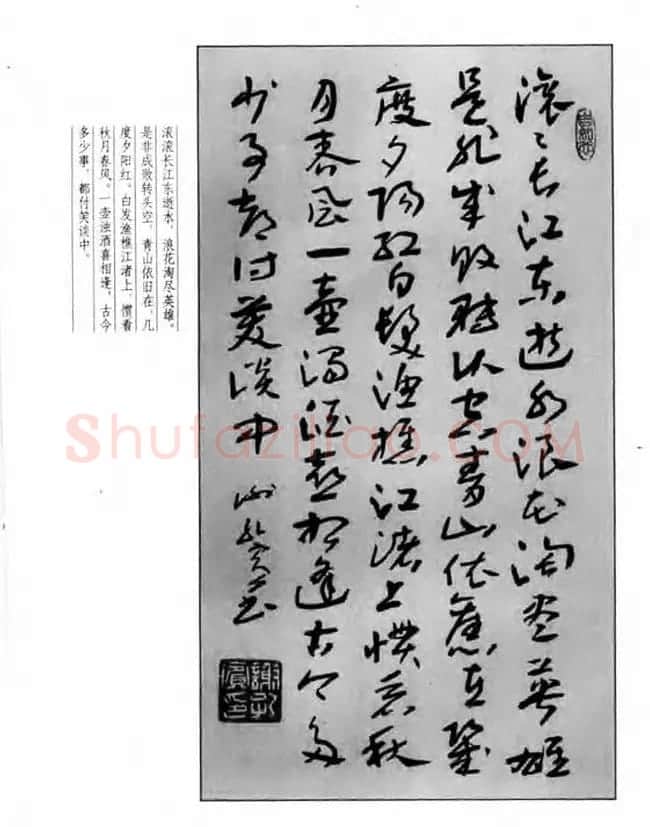 滚〻长江东逝水浪花淘尽英雄
是非成败转头空青山依舊在幾
度夕阳红白髮渔樵江渚上惯看秋
月春风一壶浊酒喜相逢古今多
少事都付笑谈中
谢孔宾书
謝孔
賓印
滚滚长江东逝水，浪花淘尽英雄。
是非成败转头空，青山依旧在，几
度夕阳红。白发渔樵江渚上，惯看
秋月春风。一壶浊酒喜相逢，古今
多少事，都付笑谈中。
Shufaziliao.COM